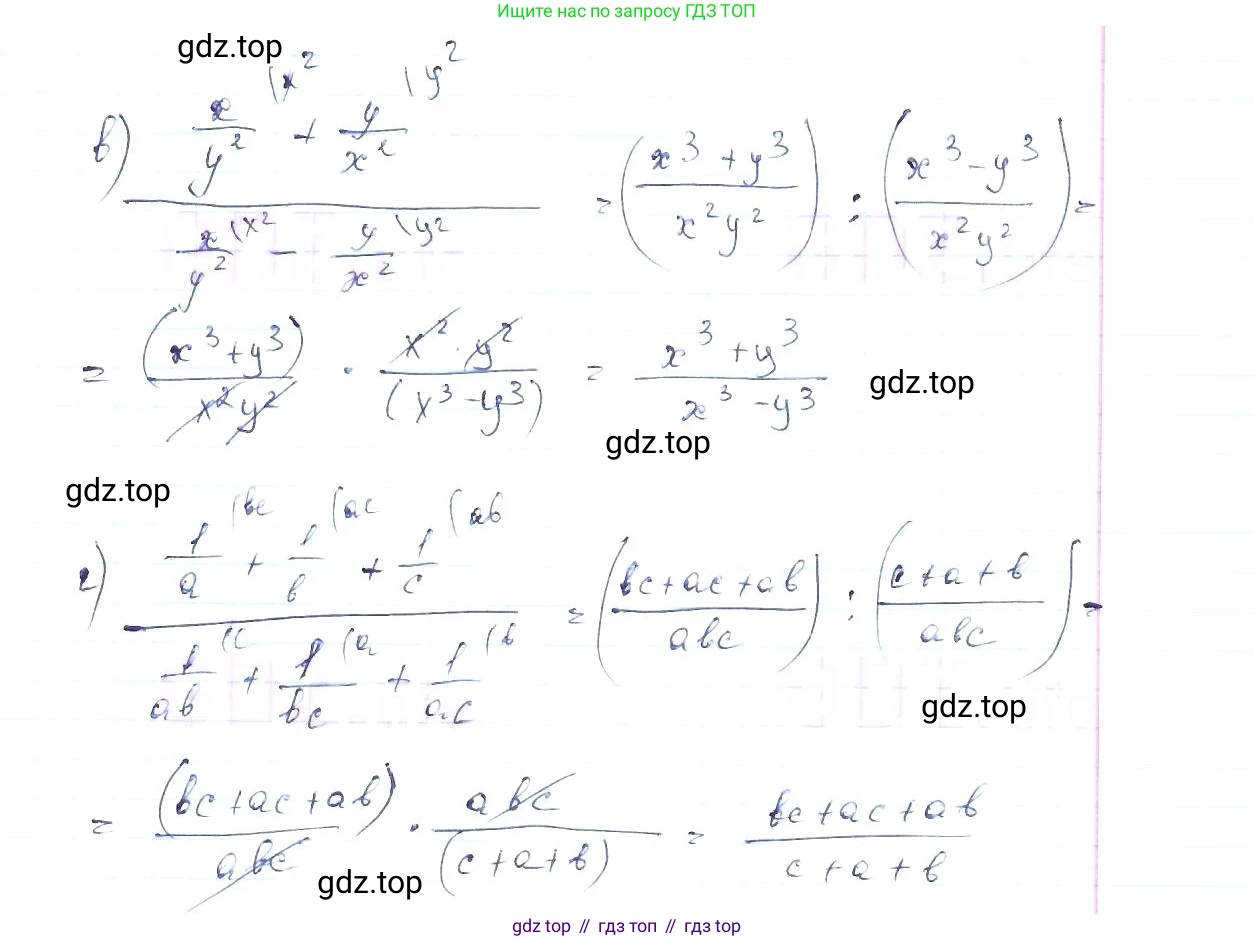 Ищите нас по запросу ГДЗ ТОП
gdz.top
в) (x/y² \x² + y/x² \y²) / (x/y² \x² − y/x² \y²) = ((x³ + y³)/(x²y²)) : ((x³ − y³)/(x²y²)) =
= (x³ + y³)/(x²y²) · (x² · y²)/(x³ − y³) = (x³ + y³)/(x³ − y³)
gdz.top
gdz.top
gdz.top
г) (1/a \bc + 1/b \ac + 1/c \ab) / (1/ab \c + 1/bc \a + 1/ac \b) = ((bc + ac + ab)/(abc)) : ((c + a + b)/(abc)) =
gdz.top
= (bc + ac + ab)/(abc) · (abc)/(c + a + b) = (bc + ac + ab)/(c + a + b)
gdz.top
gdz top // гдз топ // gdz top